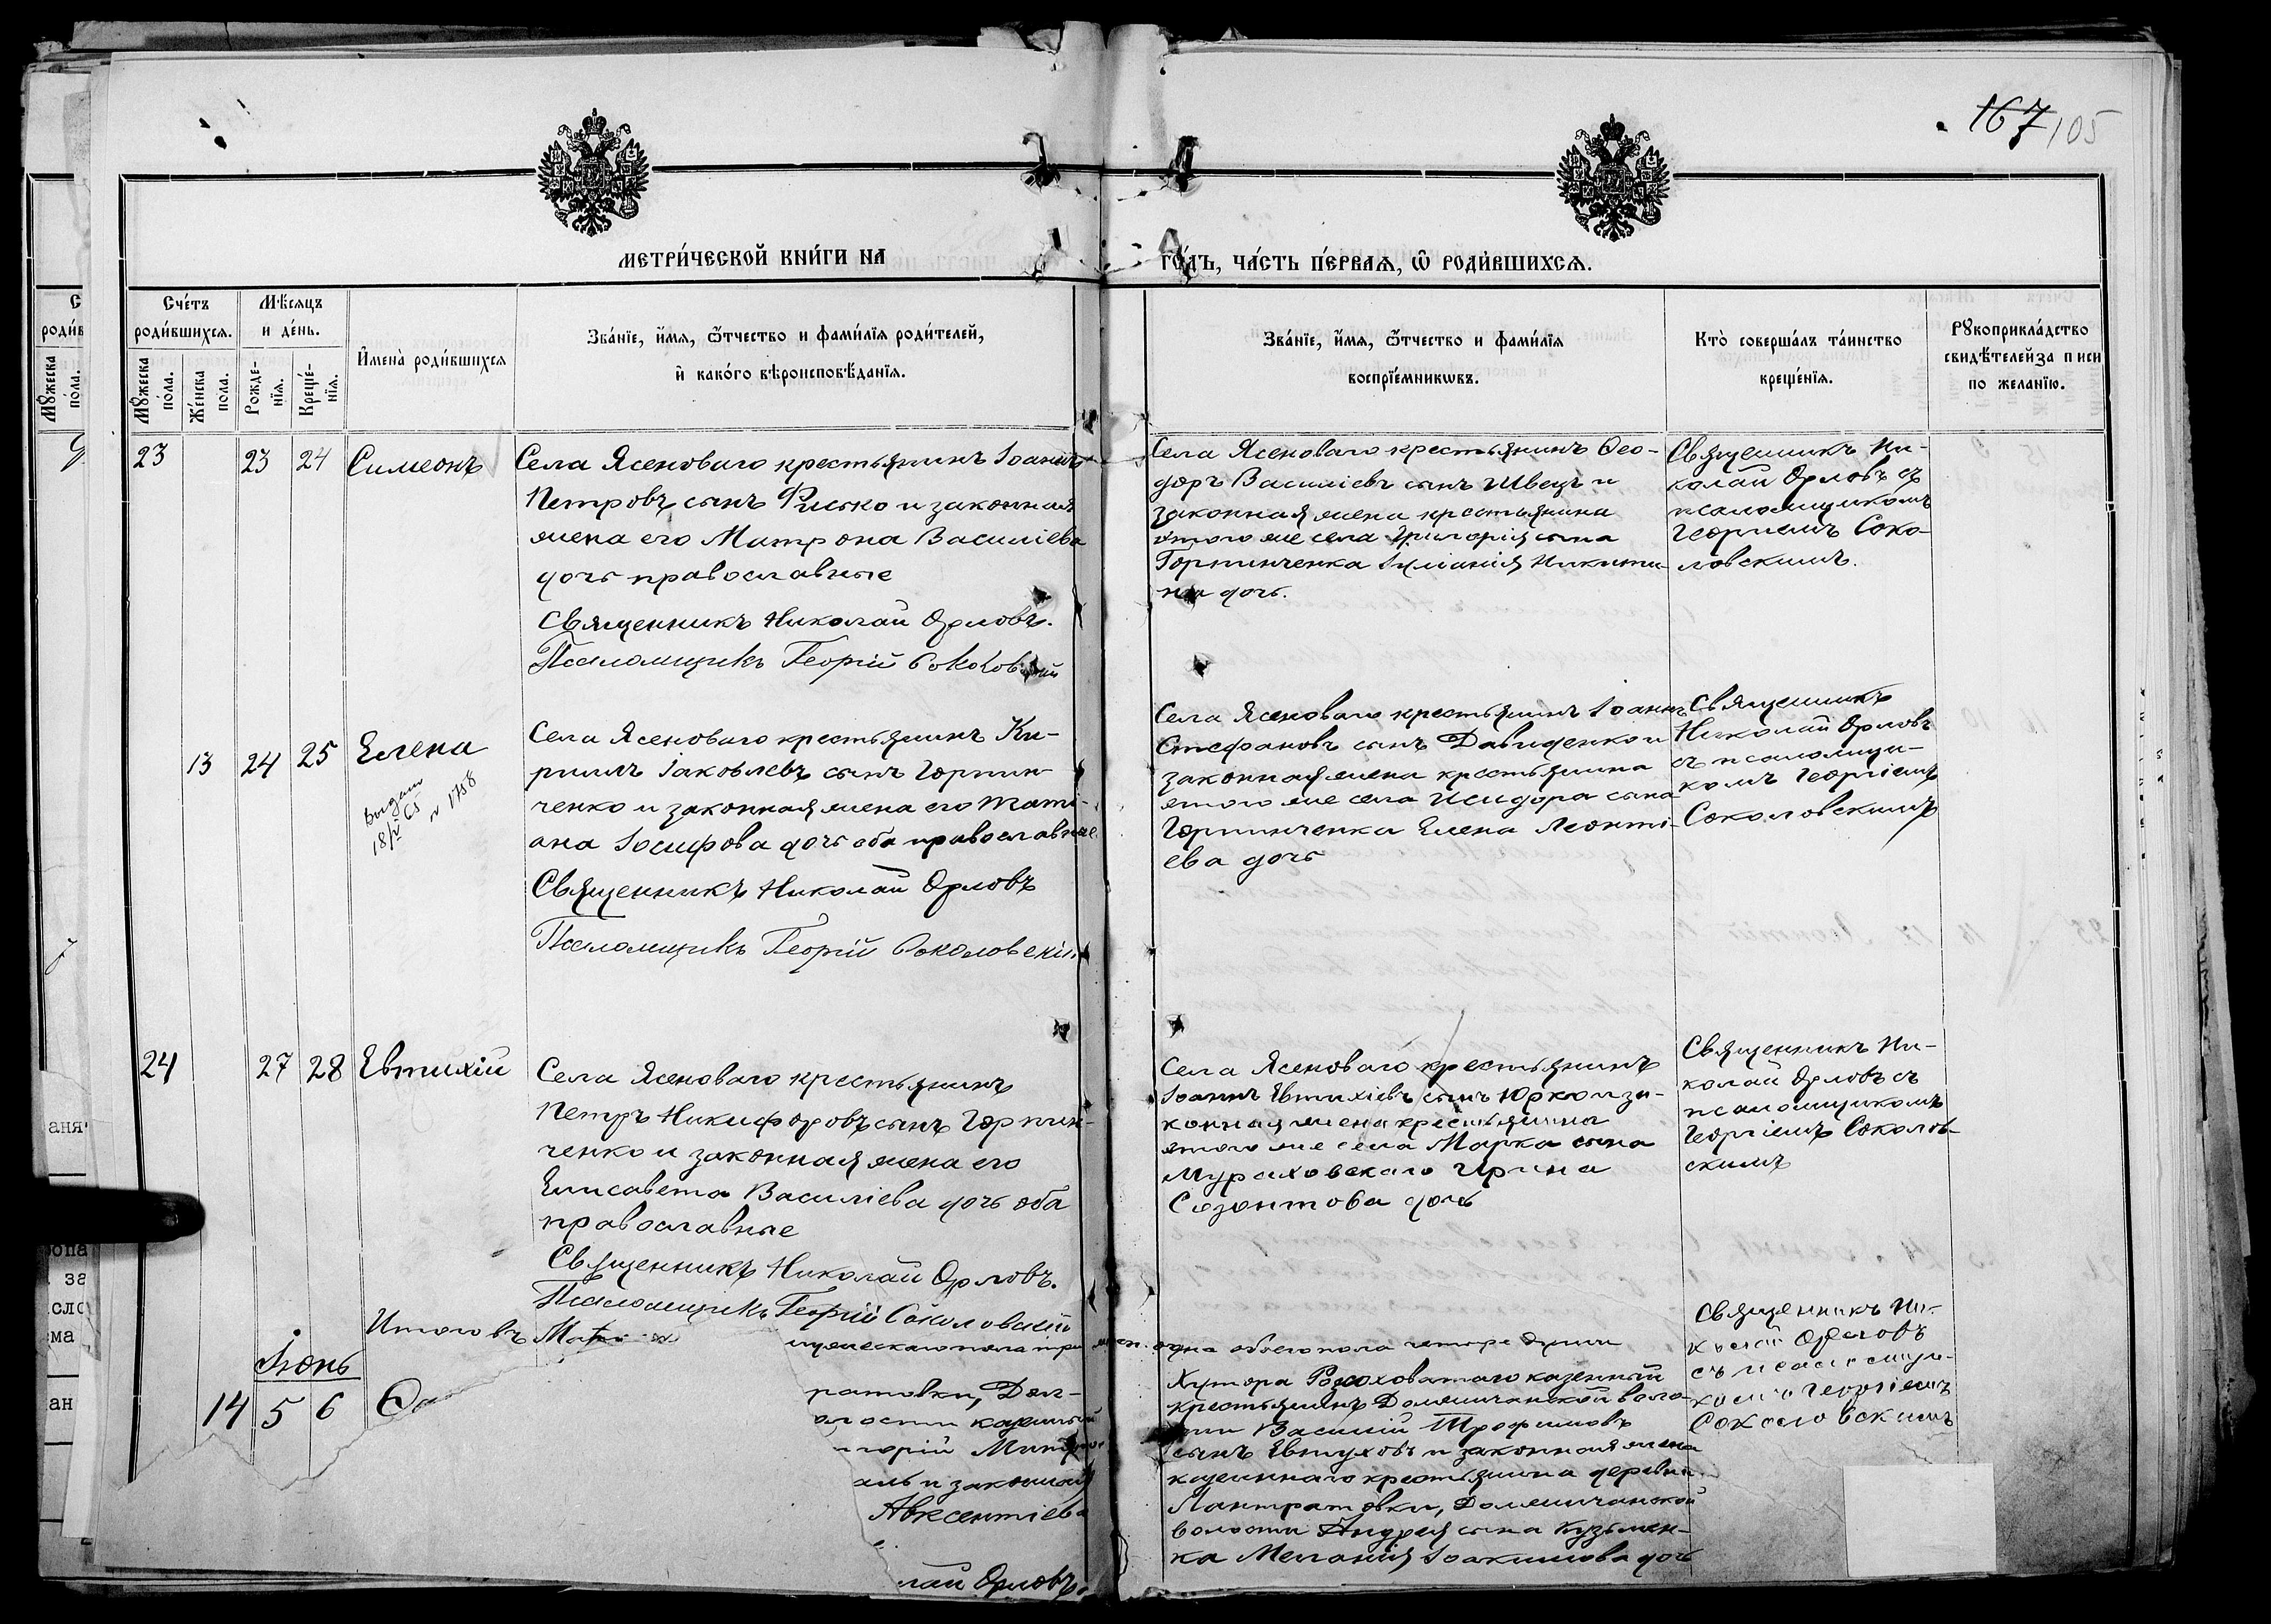 167 105
МЕТРИ́ЧЕСКОЙ КНИ́ГИ НА
ГО́ДЪ, ЧА́СТЬ ПЕ́РВАѦ, Ѿ РОДИ́ВШИХСѦ.
Сче́тъ роди́вшихсѧ.
Мꙋжеска по́ла.
Же́нска пола.
Мѣ́сѧцъ и де́нь.
Рожде-нїѧ.
Креще́-нїѧ.
И҆мена̀ роди́вшихсѧ
Зва́нїе, и҆́мѧ, ѻ҆́тчество и фами́лїѧ роди́телей,
и҆ како́го вѣроисповѣ́данїѧ.
Зва́нїе, и҆́мѧ, ѻ҆́тчество и фами́лїѧ
воспрїе́мникѡвъ.
Кто̀ соверша́лъ та́инство
креще́нїѧ.
Рꙋкоприкла́дство
свидѣ́телей за п иси
по жела́нїю.
23 23 24 Симеонъ
Села Ясеноваго крестьянинъ Іоаннъ
Петровъ сынъ Фисько и законная
жена его Матрона Василіева
дочь православные
Священникъ Николай Орловъ.
Псаломщикъ Георгій Соколовскій
Села Ясеноваго крестьянинъ Ѳео-
доръ Василіевъ сынъ Швецъ и
законная жена крестьянина
этого же села Григорія сына
Горпинченка Іуліанія Никити-
на дочь.
Священникъ Ни-
колай Орловъ съ
псаломщикомъ
Георгіемъ Соко-
ловскимъ.
13 24 25 Елена
Выдан
18/V 65
N 1758
Села Ясеноваго крестьянинъ Ки-
риллъ Іаковлевъ сынъ Горпин-
ченко и законная жена его Тати-
ана Іосифова дочь оба православные
Священникъ Николай Орловъ
Псаломщикъ Георгій Соколовскій
Села Ясеноваго крестьянинъ Іоаннъ
Стефановъ сынъ Давиденко и
законная жена крестьянина
этого же села Исидора сына
Горпинченка Елена Леонті-
ева дочь
Священникъ
Николай Орловъ
съ псаломщи-
комъ Георгіемъ
Соколовскимъ
24 27 28 Евтихій
Села Ясеноваго крестьянинъ
Петръ Никифоровъ сынъ Горпин-
ченко и законная жена его
Елисавета Василіева дочь оба
православные
Священникъ Николай Орловъ.
Псаломщикъ Георгій Соколовскій
Села Ясеноваго крестьянинъ
Іоаннъ Евтихіевъ сынъ Юрко и за-
конная жена крестьянина
этого же села Марка сына
Мураховскаго Ирина
Созонтова дочь
Священникъ Ни-
колай Орловъ съ
псаломщикомъ
Георгіемъ Соколов-
скимъ
Итого въ
мужескаго пола три жен. одна обоего пола четыре души
Іюнь
14 5 6
ратовки, Дол-
олости казенный
игорій
и законная
Авксентіева
лай Орловъ.
Хутора Розсоховатаго казенный
крестьянинъ Долинчанской воло-
сти Василій Трофимовъ
сынъ Евтуховъ и законная жена
казеннаго крестьянина деревни
Лантратовки, Долинчанской
волости Андрея сына Кузьмен-
ка Меланія Іоакимова дочь
Священникъ Ни-
колай Орловъ
съ псаломщи-
комъ Георгіемъ
Соколовскимъ